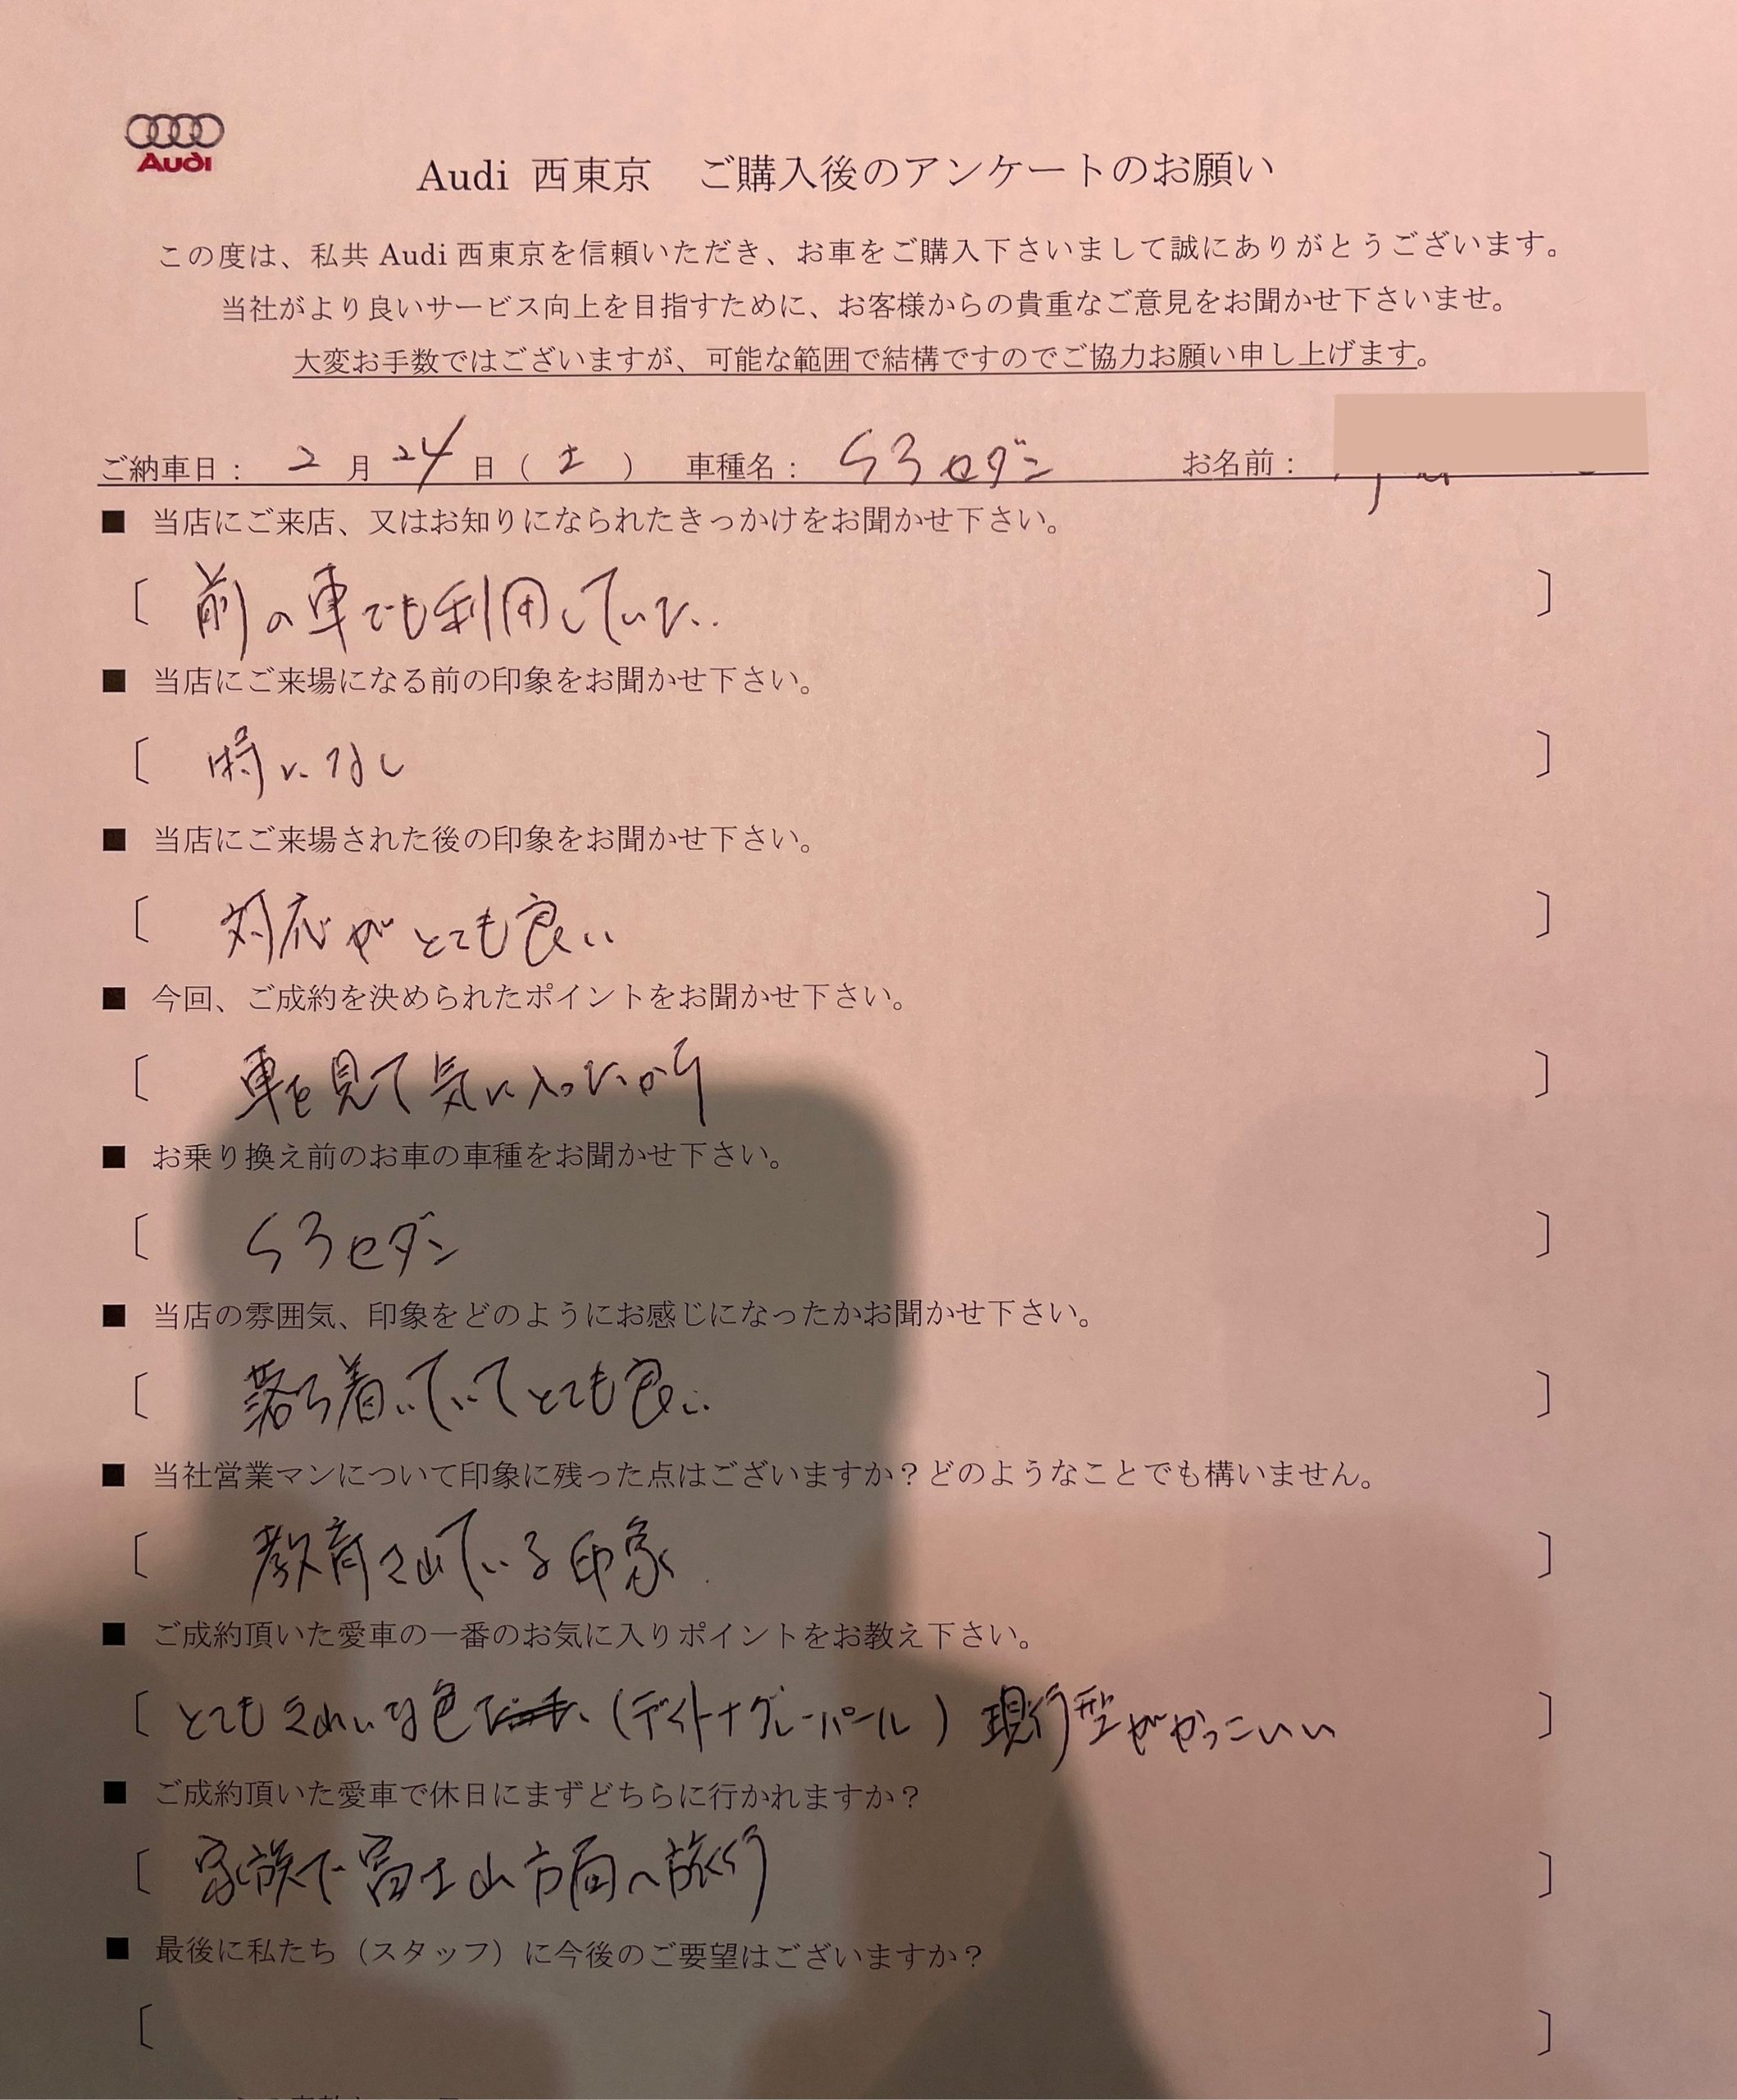 Audi
Audi 西東京 ご購入後のアンケートのお願い
この度は、私共 Audi 西東京を信頼いただき、お車をご購入下さいまして誠にありがとうございます。
当社がより良いサービス向上を目指すために、お客様からの貴重なご意見をお聞かせ下さいませ。
大変お手数ではございますが、可能な範囲で結構ですのでご協力お願い申し上げます。
ご納車日： 2 月 24 日（ 土 ） 車種名： S3セダン お名前：
■ 当店にご来店、又はお知りになられたきっかけをお聞かせ下さい。
〔 前の車でも利用していた. 〕
■ 当店にご来場になる前の印象をお聞かせ下さい。
〔 特になし 〕
■ 当店にご来場された後の印象をお聞かせ下さい。
〔 対応がとても良い 〕
■ 今回、ご成約を決められたポイントをお聞かせ下さい。
〔 車を見て気に入ったから 〕
■ お乗り換え前のお車の車種をお聞かせ下さい。
〔 S3セダン 〕
■ 当店の雰囲気、印象をどのようにお感じになったかお聞かせ下さい。
〔 落ち着いていてとても良い. 〕
■ 当社営業マンについて印象に残った点はございますか？どのようなことでも構いません。
〔 教育されている印象 〕
■ ご成約頂いた愛車の一番のお気に入りポイントをお教え下さい。
〔 とてもきれいな色 （デイトナグレーパール） 現行型がかっこいい 〕
■ ご成約頂いた愛車で休日にまずどちらに行かれますか？
〔 家族で富士山方面へ旅行 〕
■ 最後に私たち（スタッフ）に今後のご要望はございますか？
〔 〕